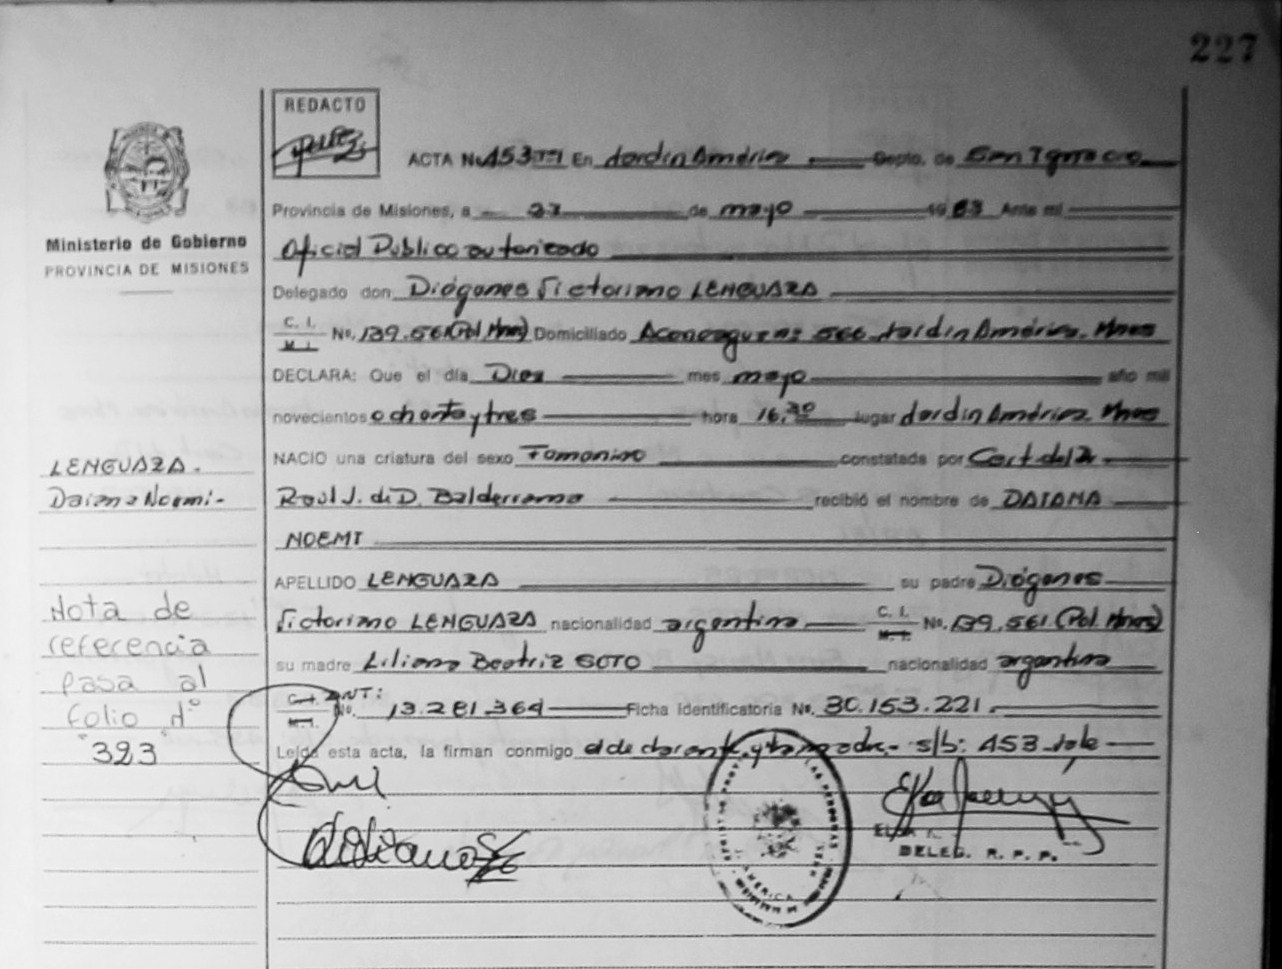 227
REDACTO
ACTA No. 453 En Jardin América Depto. de San Ignacio
Provincia de Misiones, a 27 de mayo 1983 Ante mi
Oficial Publico autorizado
Delegado don Diógenes Victorino LENGUAZA
C. I.
M. I.
No. 139.561 (Pol. Mnes) Domiciliado Aconcagua 566 Jardin América. Mnes
DECLARA: Que el día Diez mes mayo año mil
novecientos ochenta y tres hora 16,30 lugar Jardin América. Mnes
NACIO una criatura del sexo Femenino constatada por Cert. del Dr.
Raúl J. di D. Balderrama recibió el nombre de DAIANA
NOEMI
APELLIDO LENGUAZA su padre Diógenes
Victorino LENGUAZA nacionalidad argentina C. I. M. I. No. 139.561 (Pol. Mnes)
su madre Liliana Beatriz SOTO nacionalidad argentina
C. I. DNT:
M. I. No. 13.281.364 Ficha Identificatoria No. 30.153.221.
Leída esta acta, la firman conmigo el declarante, y la madre.- s/b: 453 vale
DELEG. R. P. P.
Ministerio de Gobierno
PROVINCIA DE MISIONES
LENGUAZA.
Daiana Noemi-
Nota de
referencia
pasa al
folio Nº
"323"